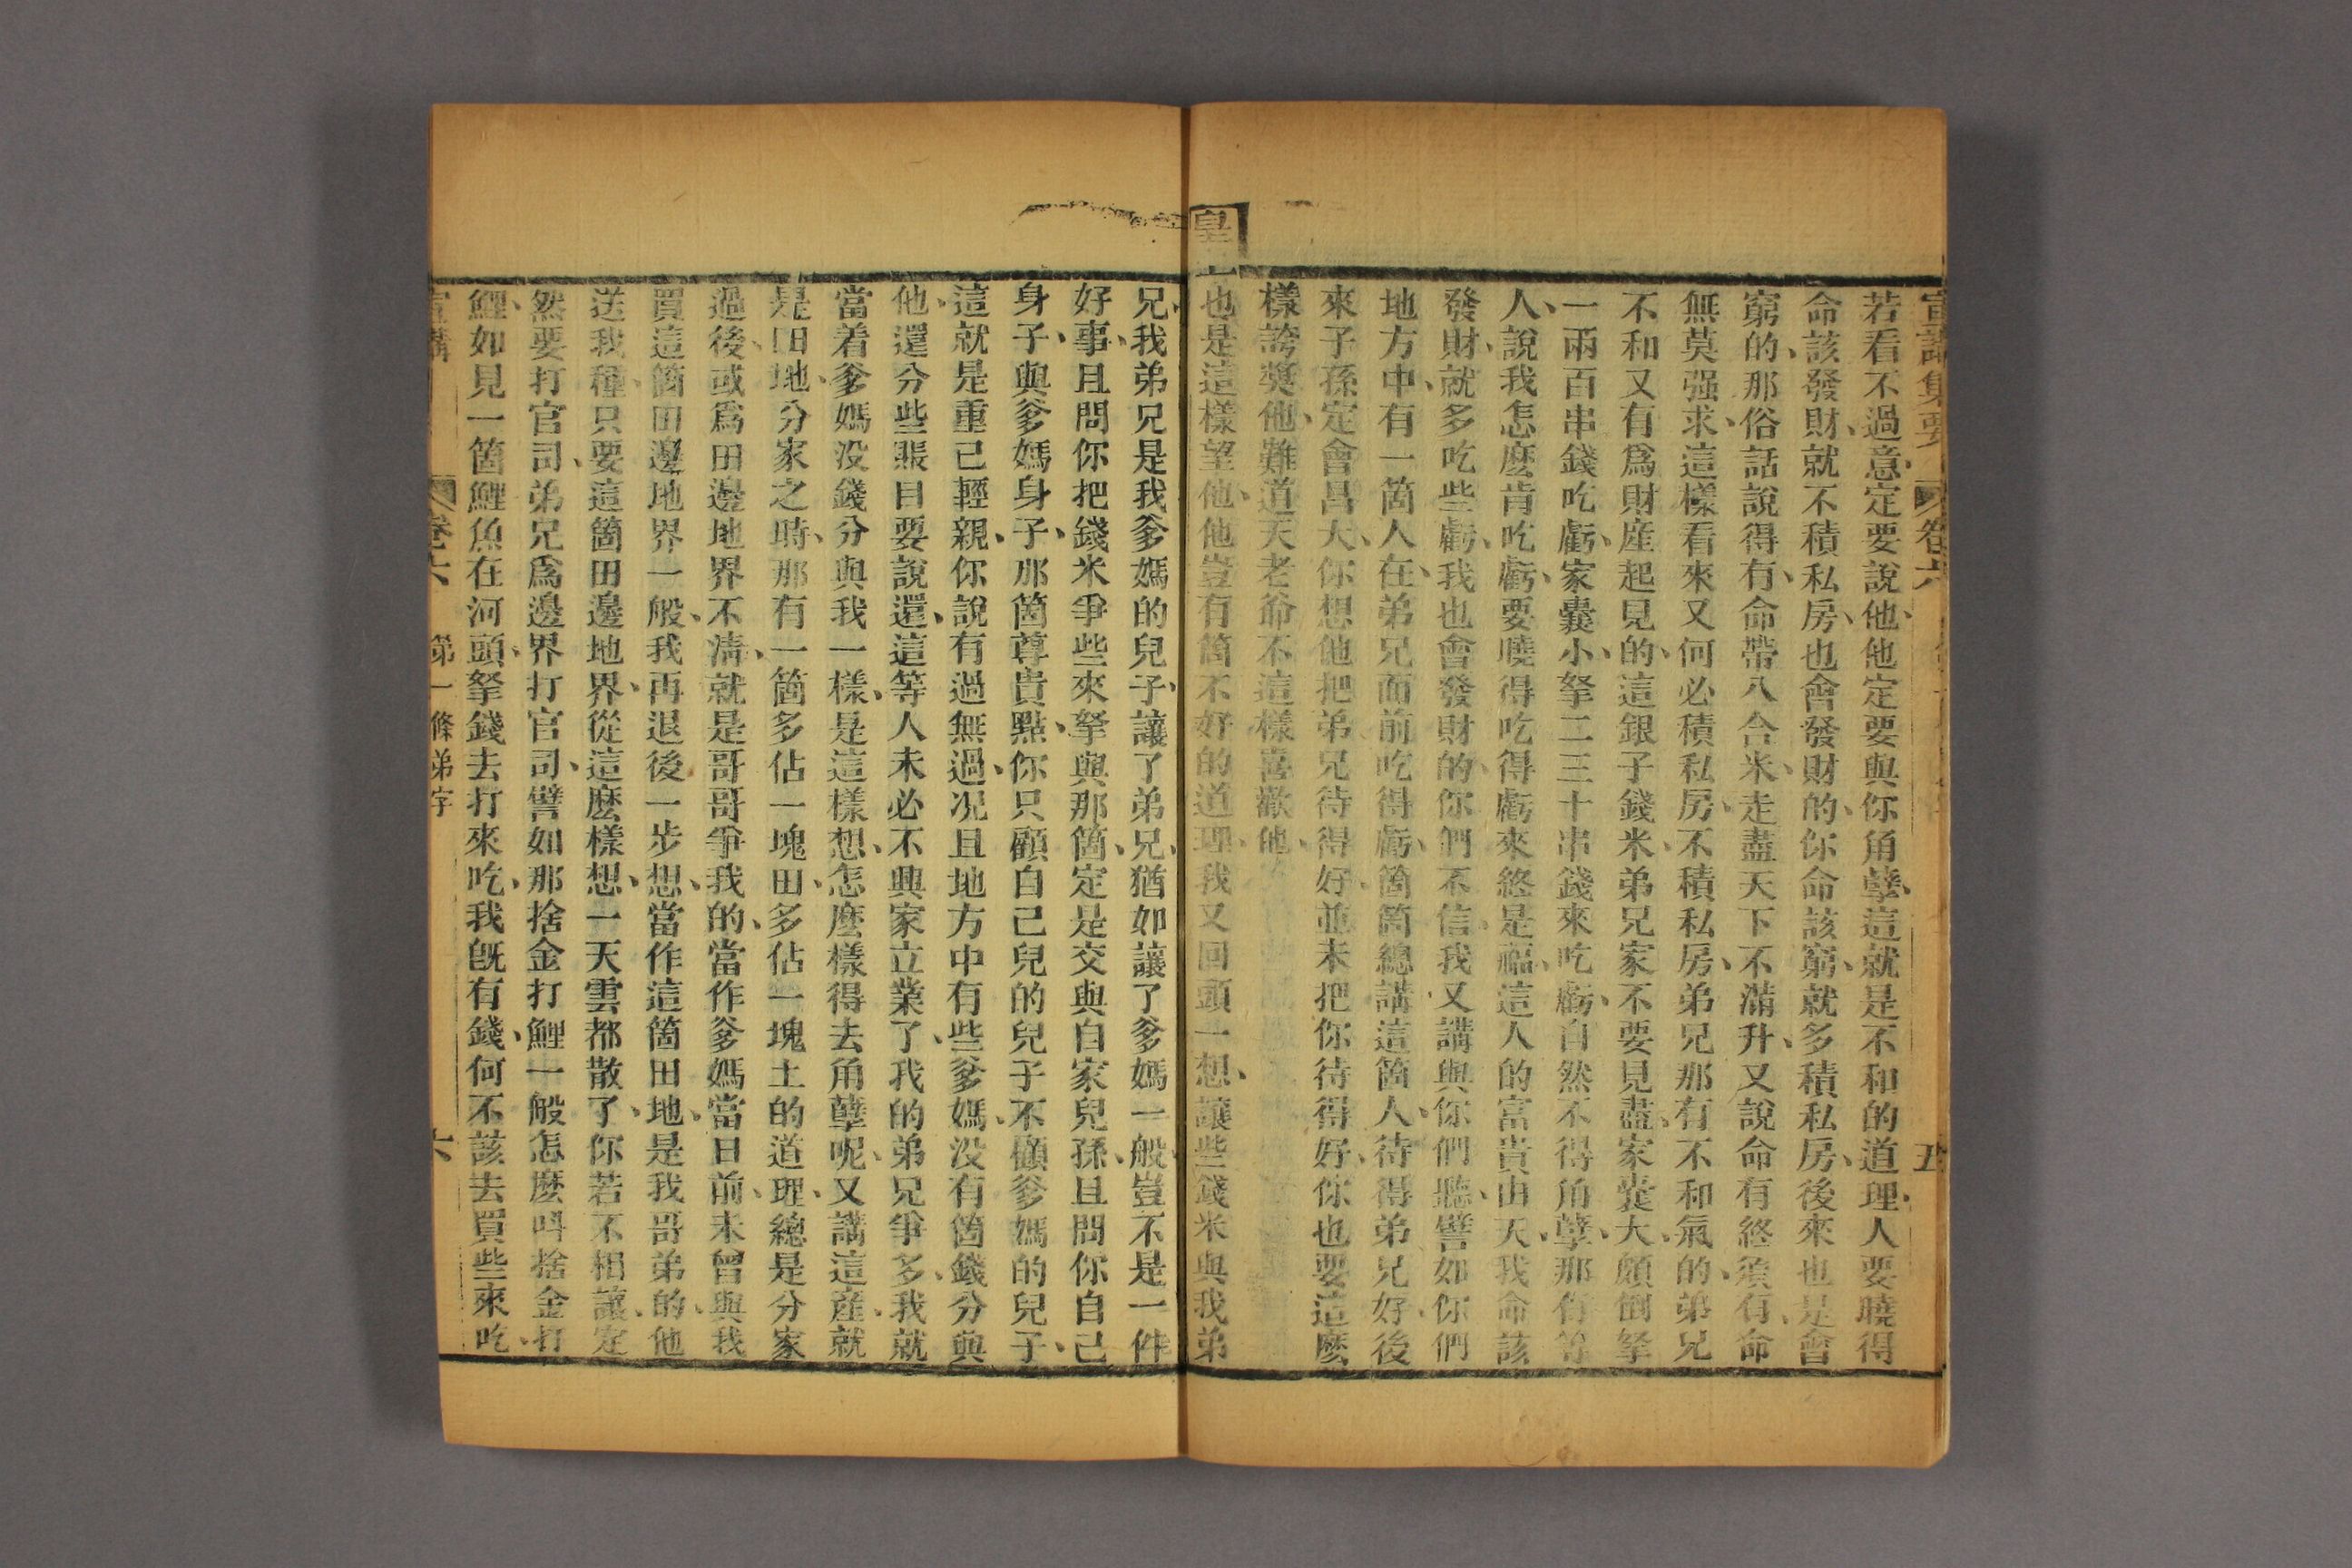 宣講集要 卷六 五
若看不過意定要說他、他定要與你角孽、這就是不和的道理、人要曉得
命該發財、就不積私房、也會發財的、你命該窮、就多積私房、後來也是會
窮的、那俗話說得有、命帶八合米、走盡天下不滿升、又說命有終須有、命
無莫强求、這樣看來又何必積私房、不積私房、弟兄那有不和氣的、弟兄
不和又有爲財產起見的、這銀子錢米、弟兄家不要見盡、家囊大、頗倒拏
一兩百串錢吃虧、家囊小、拏二三十串錢來吃虧、自然不得角孽、那有等
人、說我怎麼肯吃虧、要曉得吃得虧來終是福、這人的富貴由天、我命該
發財、就多吃些虧、我也會發財的、你們不信、我又講與你們聽、譬如你們
地方中、有一箇人、在弟兄面前吃得虧、箇箇總講這箇人、待得弟兄好、後
來子孫定會昌大、你想他把弟兄待得好、並未把你待得好、你也要這麼
樣誇奬他、難道天老爺不這樣喜歡他、
皇上也是這樣望他、他豈有箇不好的道理、我又回頭一想、讓些錢米與我弟
兄、我弟兄是我爹媽的兒子、讓了弟兄、猶如讓了爹媽一般、豈不是一件
好事、且問你把錢米爭些來拏與那箇、定是交與自家兒孫、且問你自己
身子、與爹媽身子、那箇尊貴點、你只顧自己兒的兒子、不顧爹媽的兒子、
這就是重己輕親、你說有過無過、况且地方中有些爹媽、没有箇錢分與
他、還分些賬目要說還、這等人未必不興家立業了、我的弟兄爭多、我就
當着爹媽没錢分與我一樣、是這樣想、怎麼樣得去角孽呢、又講這産、就
是田地、分家之時、那有一箇多佔一塊田、多佔一塊土的道理、總是分家
過後、或爲田邊地界不淸、就是哥哥爭我的、當作爹媽當日前、未曾與我
買這箇田邊地界一般、我再退後一步想、當作這箇田地、是我哥弟的、他
送我種、只要這箇田邊地界、從這麼樣想、一天雲都散了、你若不相讓、定
然要打官司、弟兄爲邊界打官司、譬如那捨金打鯉一般、怎麼呌捨金打
鯉、如見一箇鯉魚在河頭、拏錢去打來吃、我旣有錢、何不該去買些來吃、
宣講 卷六 第一條弟字 六